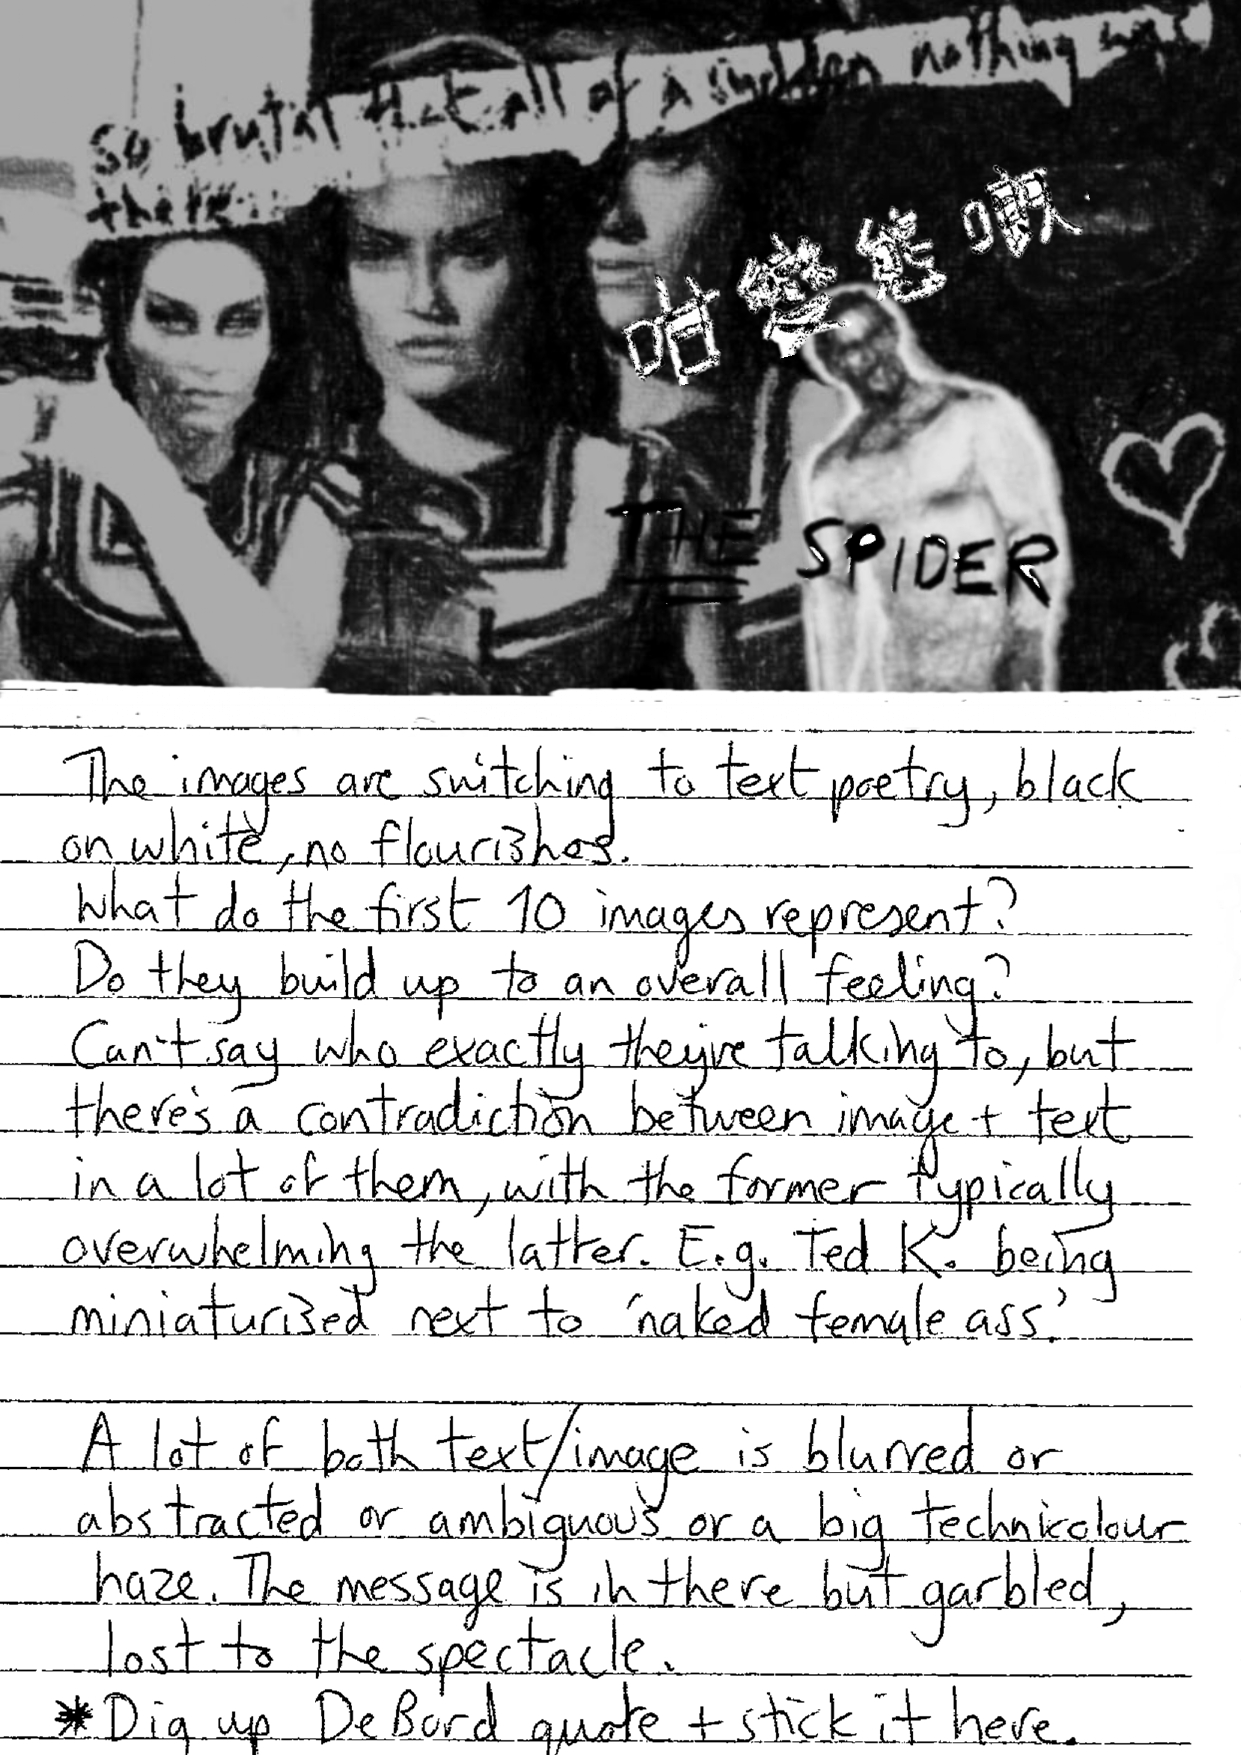 so brutal that all of a sudden nothing was
there...
咁變態㗎
THE SPIDER
The images are switching to text poetry, black
on white, no flourishes.
What do the first 10 images represent?
Do they build up to an overall feeling?
Can't say who exactly they're talking to, but
there's a contradiction between image + text
in a lot of them, with the former typically
overwhelming the latter. E.g. Ted K. being
miniaturised next to 'naked female ass.'
A lot of both text/image is blurred or
abstracted or ambiguous or a big technicolour
haze. The message is in there but garbled,
lost to the spectacle.
* Dig up DeBord quote + stick it here.